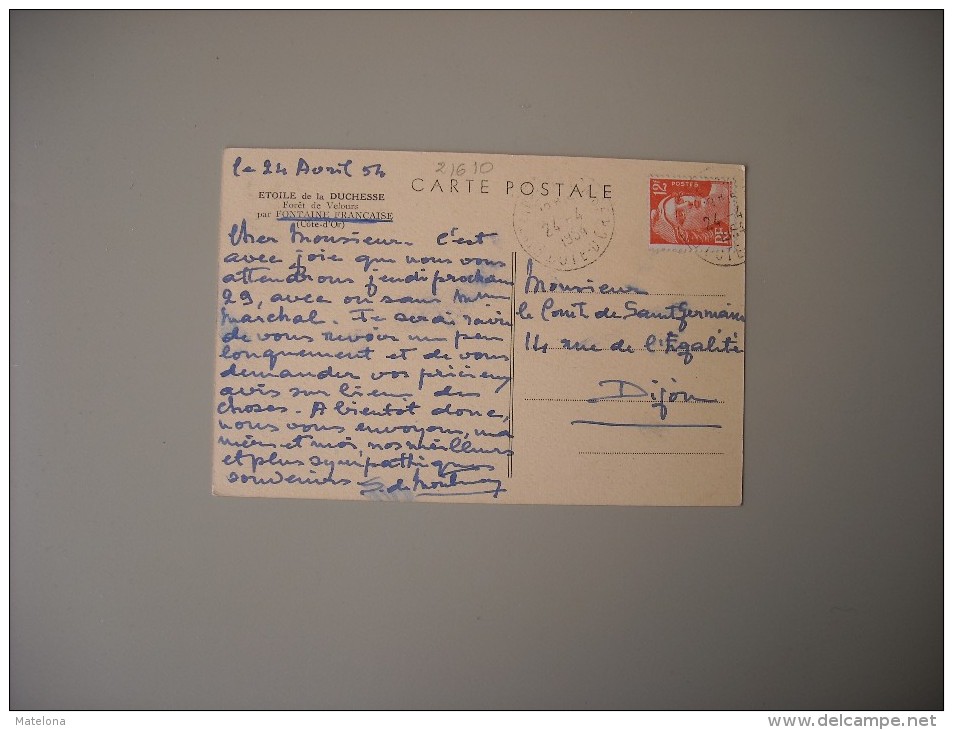 le 24 Avril 54
21610
CARTE POSTALE
ETOILE de la DUCHESSE
Forêt de Velours
par FONTAINE FRANCAISE
(Côte-d'Or)
Cher Monsieur. C'est
avec joie que nous vous
attendrons jeudi prochain
29, avec ou sans Mme
Marchal. Je serai ravie
de vous revoir un peu
longuement et de vous
demander vos précieux
avis sur bien des
choses. A bientôt donc,
nous vous envoyons, ma
mère et moi, nos meilleurs
et plus sympathiques
souvenirs
12F
POSTES
RF
24 4
1954
COTE-D'OR
Monsieur
le Comte de Saint Germain
14 rue de l'Egalité
Dijon
Matelona
delcampe.net